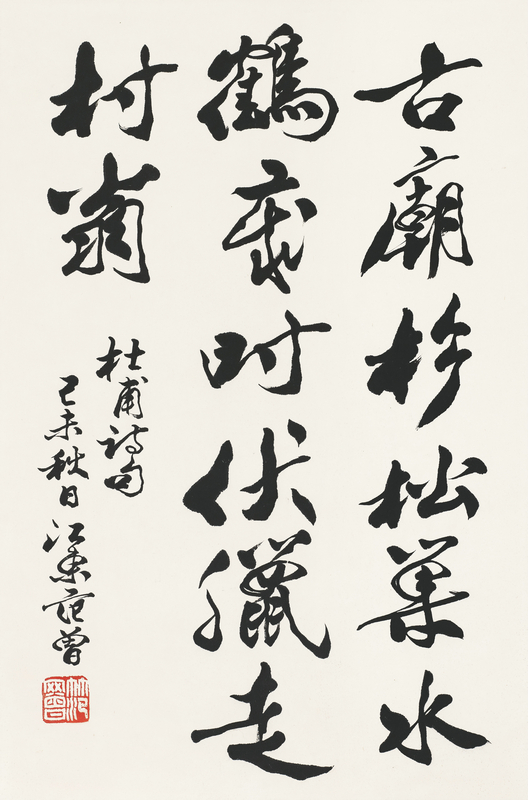 古廟杉松巢水
鶴歲時伏臘走
村翁
杜甫詩句
己未秋日江東范曾